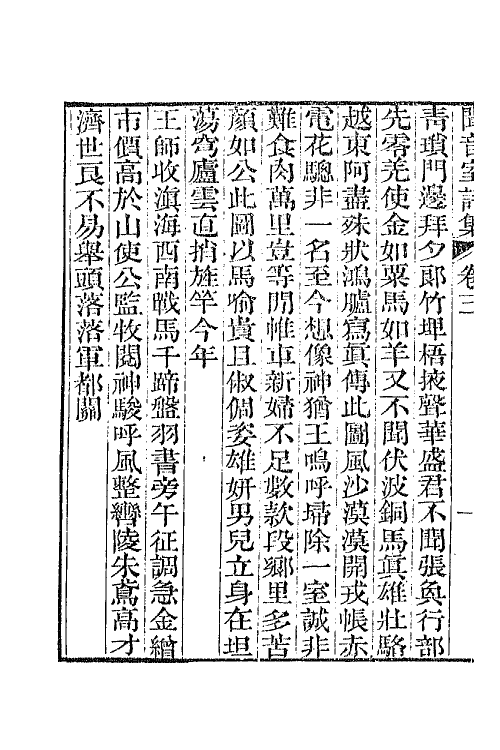 聞音室詩集 卷三
青瑣門邊拜夕郎竹埤梧掖聲華盛君不聞張奐行部
先零羌使金如粟馬如羊又不聞伏波銅馬眞雄壯駱
越東阿盡殊狀鴻臚寫眞傳此圖風沙漠漠開戎帳赤
電花驄非一名至今想像神猶王嗚呼埽除一室誠非
難食肉萬里豈等閒帷車新婦不足數款段鄉里多苦
顏如公此圖以馬喻貴且俶倜姿雄妍男兒立身在坦
蕩穹廬雲迫捎旌竿今年
王師收滇海西南戰馬千蹄盤羽書旁午征調急金繒
市價高於山使公監牧閱神駿呼風整轡陵朱鳶高才
濟世良不易舉頭落落軍都關